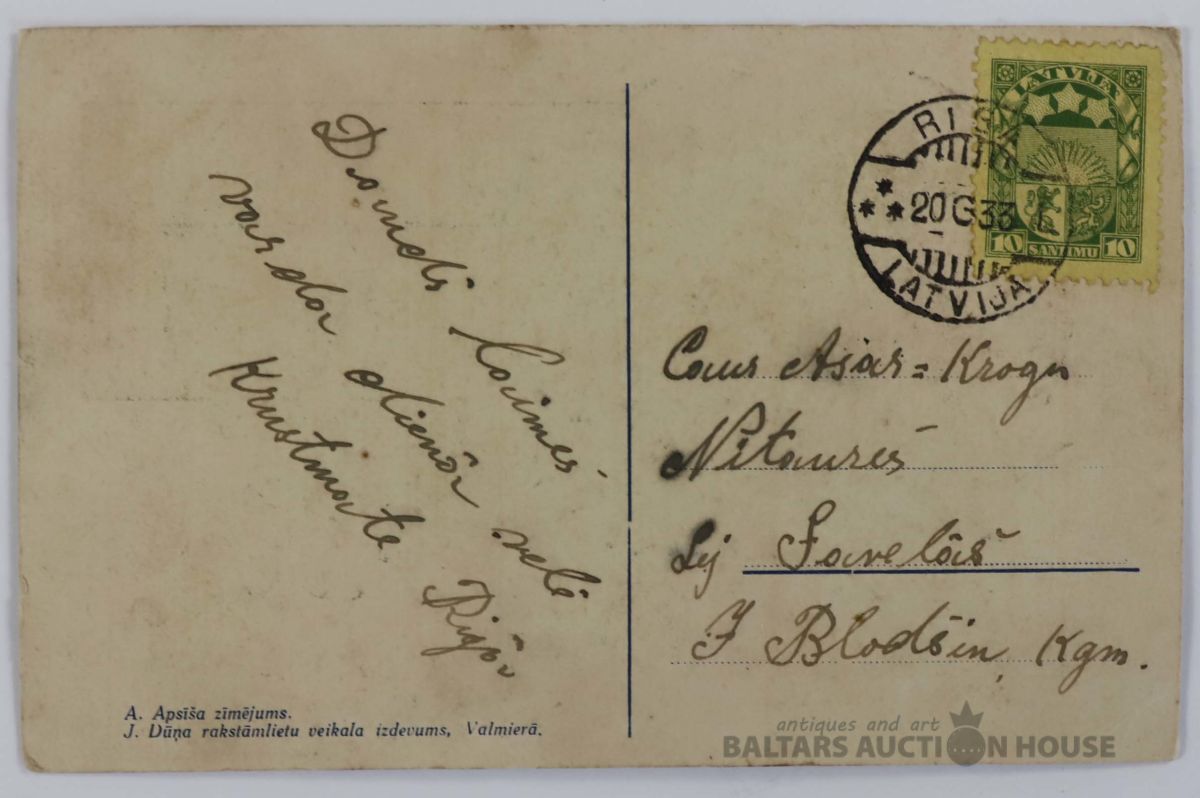 Daudz laimes
varda dienā vēlē
Krustmāte Rīgā
A. Apsīša zīmējums.
J. Dūņa rakstāmlietu veikala izdevums, Valmierā.
LATVIJA
10 SANTIMU 10
RIGA
20 6 33
LATVIJA
Caur Asar=Krogu
Nitaurēs
Lej
J Blodšiņ Kgm.
antiques and art
BALTARS AUCTION HOUSE